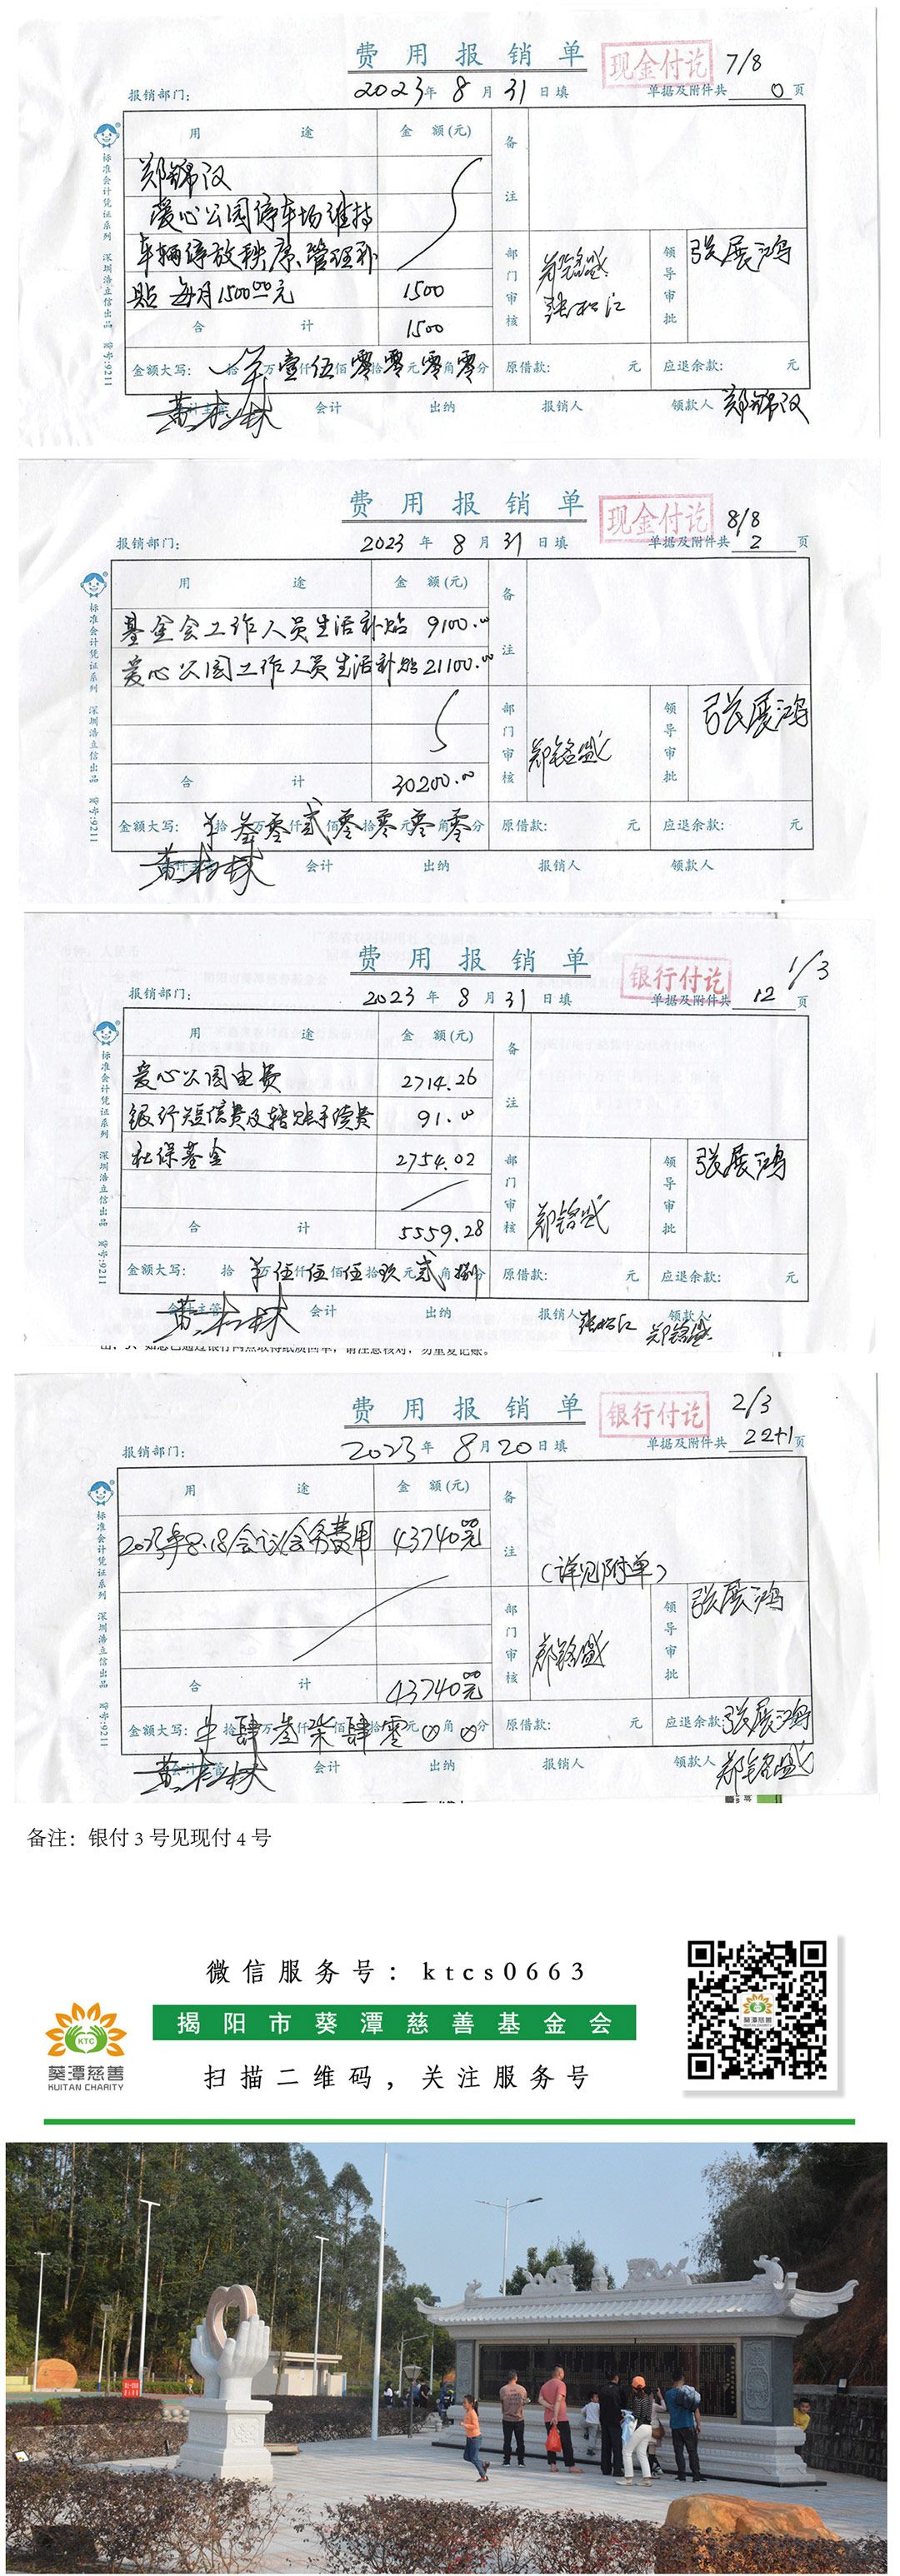 费用报销单
现金付讫 7/8
报销部门: 2023年 8月 31日填 单据及附件共 0 页
用途 金额(元) 备注
郑锦汉
爱心公园停车场维持
车辆停放秩序、管理补
贴 每月1500.00元 1500
部门审核 郑铭盛 张松江 领导审批 张展鸿
合计 1500
金额大写: 拾 羊万壹仟伍佰零拾零元零角零分 原借款: 元 应退余款: 元
会计主管 会计 出纳 报销人 领款人 郑锦汉
标准会计凭证系列 深圳浩立信出品 货号:9211
费用报销单
现金付讫 8/8
报销部门: 2023年 8月 31日填 单据及附件共 2 页
用途 金额(元) 备注
基金会工作人员生活补贴 9100.00
爱心公园工作人员生活补贴 21100.00
部门审核 郑铭盛 领导审批 张展鸿
合计 30200.00
金额大写: 羊拾叁万零仟贰佰零拾零元零角零分 原借款: 元 应退余款: 元
会计主管 会计 出纳 报销人 领款人
标准会计凭证系列 深圳浩立信出品 货号:9211
费用报销单
银行付讫 1/3
报销部门: 2023年 8月 31日填 单据及附件共 12 页
用途 金额(元) 备注
爱心公园电费 2714.26
银行短信费及转账手续费 91.00
社保基金 2754.02
部门审核 郑铭盛 领导审批 张展鸿
合计 5559.28
金额大写: 拾羊万伍仟伍佰伍拾玖元贰角捌分 原借款: 元 应退余款: 元
会计主管 会计 出纳 报销人 张松江 领款人 郑铭盛
标准会计凭证系列 深圳浩立信出品 货号:9211
费用报销单
银行付讫 2/3
报销部门: 2023年 8月 20日填 单据及附件共 22+1 页
用途 金额(元) 备注
2023年8.18会议会务费用 43740.00元
(详见附单)
部门审核 郑铭盛 领导审批 张展鸿
合计 43740.00元
金额大写: 羊拾肆万叁仟柒佰肆拾零元0角0分 原借款: 元 应退余款: 张展鸿
会计主管 会计 出纳 报销人 领款人 郑铭盛
标准会计凭证系列 深圳浩立信出品 货号:9211
备注：银付3号见现付4号
微信服务号：ktcs0663
揭阳市葵潭慈善基金会
扫描二维码，关注服务号
KTC
葵潭慈善
KUITAN CHARITY
葵潭慈善